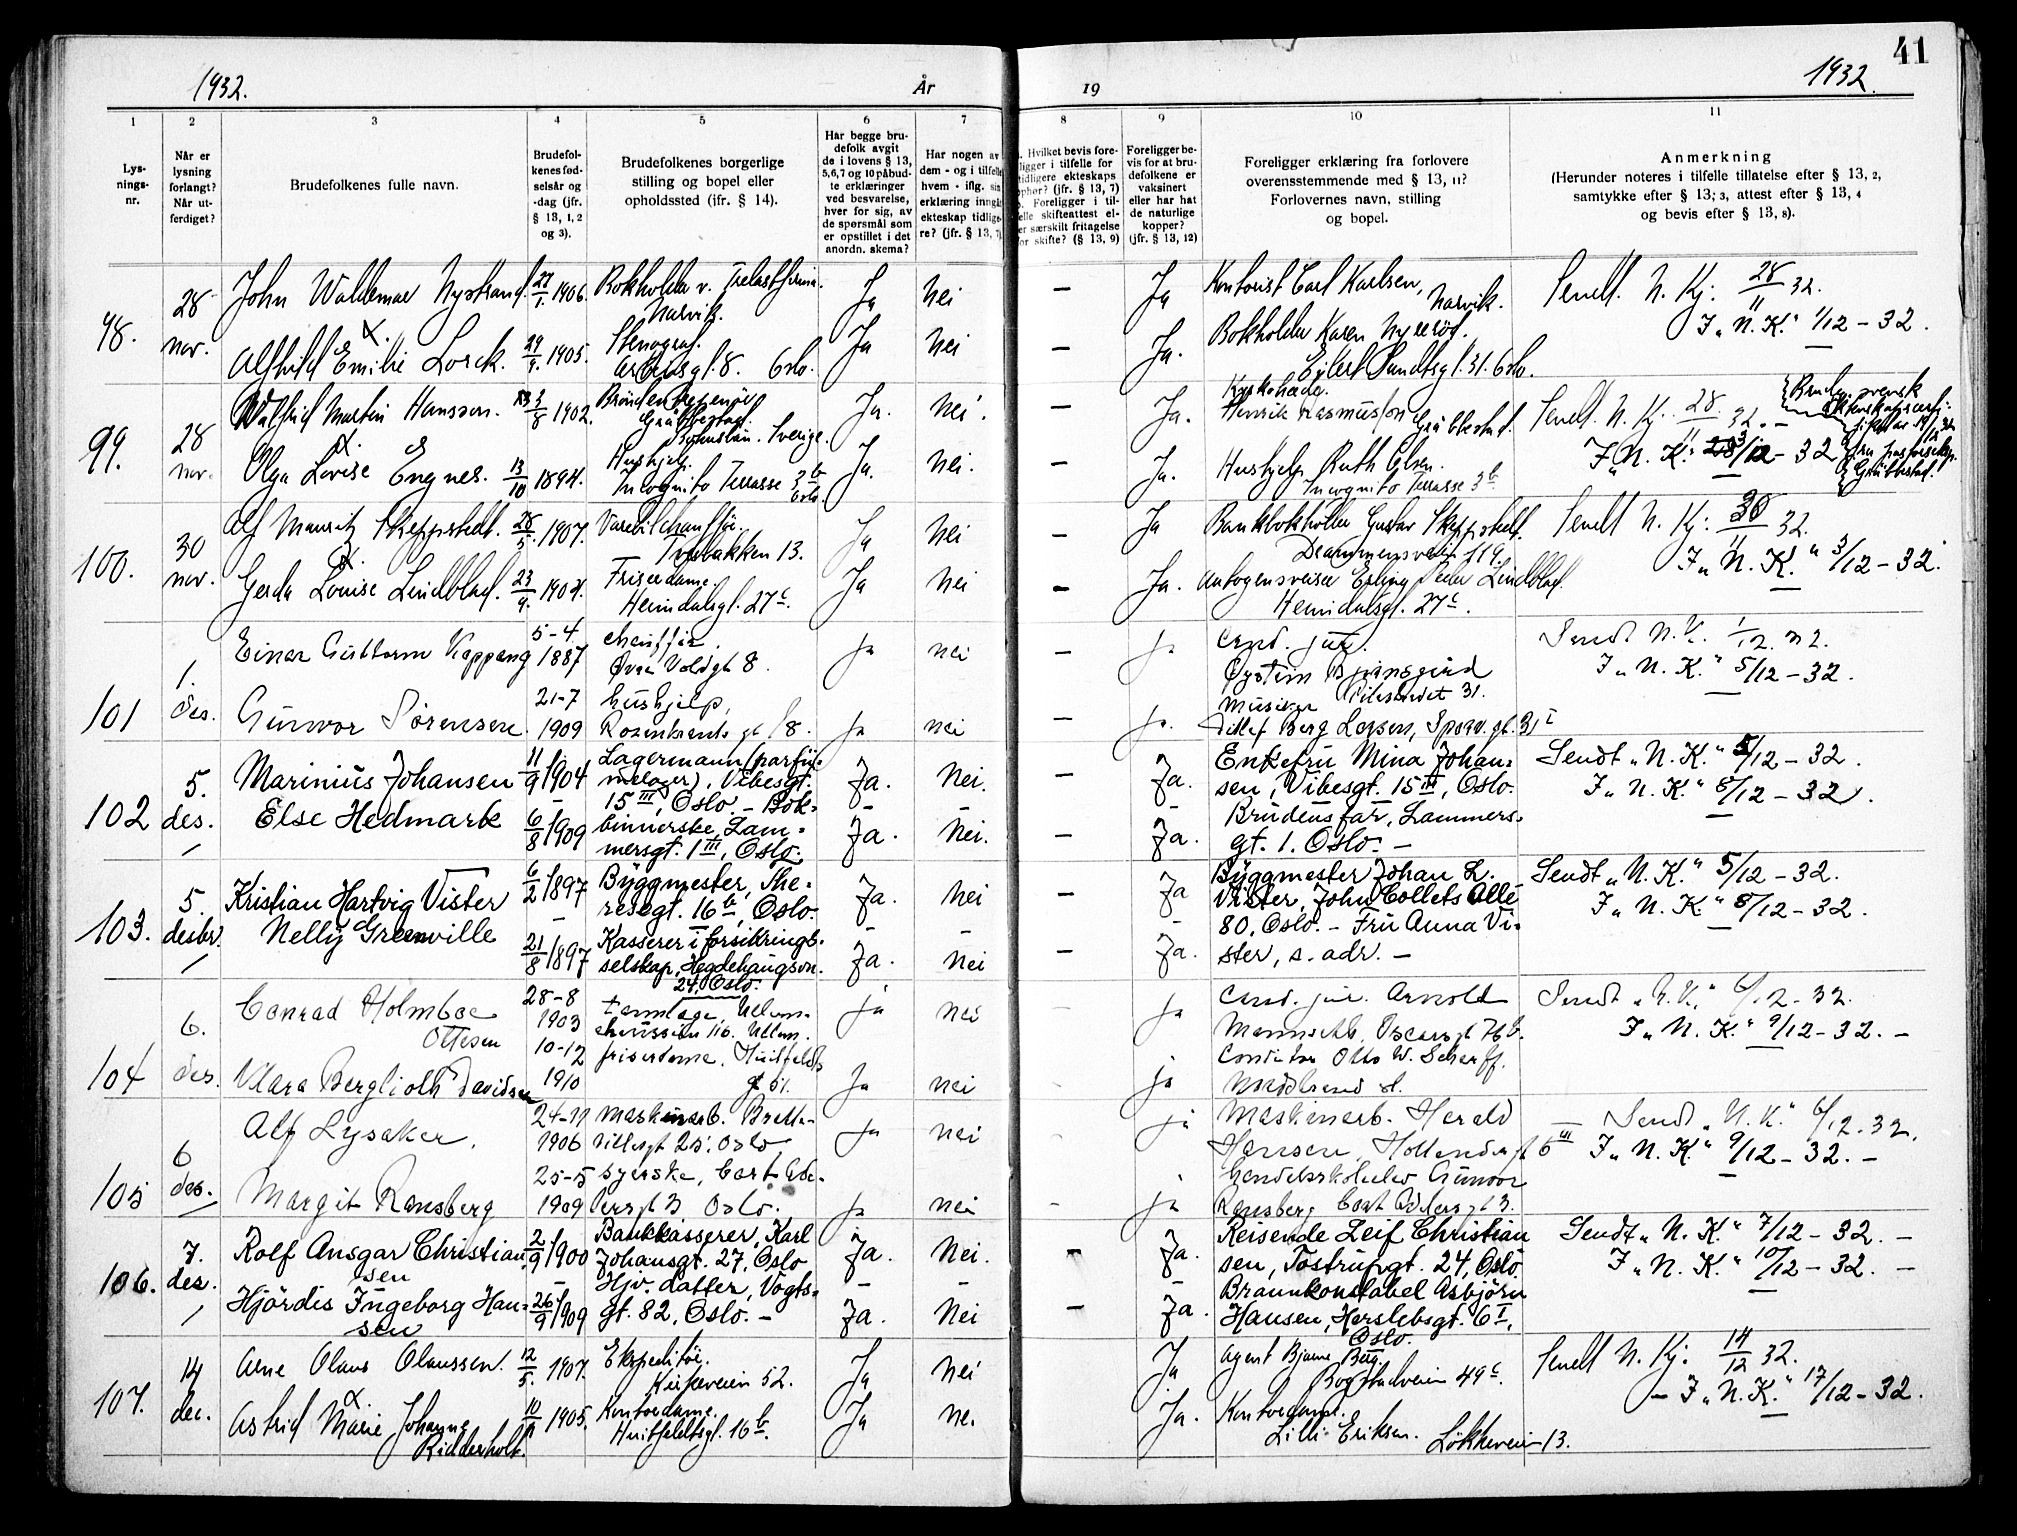 41
1932.
År
19
1932.
1
Lys-
nings-
nr.
2
Når er
lysning
forlangt?
Når ut-
ferdiget?
3
Brudefolkenes fulle navn.
4
Brudefol-
kenes fød-
selsår og
-dag (jfr.
§ 13, 1, 2
og 3).
5
Brudefolkenes borgerlige
stilling og bopel eller
opholdssted (jfr. § 14).
6
Har begge bru-
defolk avgit
de i lovens § 13,
5,6,7 og 10 påbud-
te erklæringer
ved besvarelse,
hver for sig, av
de spørsmål som
er opstillet i det
anordn. skema?
7
Har nogen av
dem - og i tilfelle
hvem - iflg. sin
erklæring inngå
ekteskap tidlige-
re? (jfr. § 13, 7)
8
Hvilket bevis fore-
ligger i tilfelle for
tidligere ekteskaps
ophør? (jfr. § 13, 7)
Foreligger i til-
felle skifteattest el-
er særskilt fritagelse
for skifte? (§ 13, 9)
9
Foreligger be-
vis for at bru-
defolkene er
vaksinert
eller har hat
de naturlige
kopper?
(jfr. § 13, 12)
10
Foreligger erklæring fra forlovere
overensstemmende med § 13, 11?
Forlovernes navn, stilling
og bopel.
11
Anmerkning
(Herunder noteres i tilfelle tillatelse efter § 13, 2,
samtykke efter § 13; 3, attest efter § 13, 4
og bevis efter § 13, 8).
98.
28
nov.
John Waldemar Nystrand. 27/1. 1906. Bokholder v. Trelastfirma. Narvik. Ja Nei — Ja Kontorist Carl Karlsen, Narvik. Sendt. N. Kj: 28/11 32.
I „N. K." 1/12 - 32.
Alfhild Emilie Lorck. 29/9. 1905. Stenograf. Oslo. Ja Nei — Ja. Bokholder Karen
Eilert Sundtsgt. 31. Oslo.
99.
28
nov.
Martin Hansson. 1902. Gräbbestad. Bohuslän. Sverige. Ja. Nei. — Ja. Henrik Rasmusson Gräbbestad. Sendt. N. Kj. 28/11 32. -
I „N. K." 3/12 - 32
Olga Lovise Engnes. 13/10 1894. Hushjelp. Incognito Terrasse 3b Oslo. Ja. Nei. — Ja. Hushjelp Ruth Olsen.
Incognito Terrasse 3b.
100.
30
nov.
Alf Mauritz Skeppstedt. 28/5. 1907. Varebilchauffør. 13. Ja Nei — Ja Bankbokholder Gustav Skeppstedt. Sendt N. Kj: 30/11 32.
Drammensveien 119.
I „N. K." 3/12 - 32.
Gerda Louise Lindblad. 23/9. 1904. Friserdame. Heimdalsgt. 27c. Ja Nei — Ja. Autogensveiser Erling Peder Lindblad.
Heimdalsgt. 27c.
101
1.
des.
Einar Guttorm Kappang 5-4 1887 chauffør. Øvre Voldgt 8. Ja nei — ja Cand. jur. Sendt N. K. 1/12. 32.
Øystein
Pilestredet 31.
I „N. K." 5/12 - 32.
Gunvor Sørensen. 21-7 1909 hushjelp, Rosenkrantz gt 8. ja nei — ja. Musiker
Ditlef Berg Larsen,
102
5.
des.
Marinius Johansen 11/9 1904 Lagermann (parfü-
melager), Vibesgt.
15 III, Oslo — Ja. Nei. — Ja. Enkefru Mina Johan-
sen, Vibesgt. 15 III, Oslo. Sendt „N. K." 5/12 - 32.
I „N. K." 8/12 - 32.
Else Hedmark 6/8 1909 Bok-
binnerske, Lam-
mersgt. 1 III, Oslo. Ja. Nei. — Ja. Brudens far, Lammers-
gt. 1. Oslo. —
103.
5.
desbr.
Kristian Hartvig Vister 6/2 1897 Byggmester, The-
resegt. 16b, Oslo. Ja. Nei — Ja Byggmester Johan L.
Vister, John Collets Allé
80. Oslo. - Fru Anna Vi-
ster, s. adr. — Sendt „N. K." 5/12 - 32.
I „N. K." 8/12 - 32.
Nelly Greenville 21/8 1897 Kasserer i forsikrings-
selskap, Hegdehaugsvn.
24, Oslo. Ja. Nei — Ja.
104
6.
des.
Conrad Holmboe
Ottesen 28-8 1903 tannlæge, ja nei ja Cand. jur. Arnold
Oscarsgt 76b. Sendt „N. K." 6/12 - 32.
I „N. K." 9/12 - 32. -
Klara Berglioth Davidsen 10-12 1910 friserdame, Huitfeldts
gt 51. Ja nei ja Otto W. Scherff.
105
6
des.
Alf Lysaker. 24-11 1906 maskinarb. Oslo ja nei ja Maskinarb. Herald
Hansen, 6 III Sendt „N. K." 6/12. 32.
I „N. K." 9/12 - 32. -
Margit Ransberg 25-5 1909 syerske, Cort Ade-
lersgt 3 Oslo. ja nei - ja Gunvor
Ransberg Cort Adlersgt 3.
106.
7.
des.
Rolf Ansgar Christian-
sen 2/9 1900 Bankkasserer, Karl
Johansgt. 27, Oslo Ja. Nei. — Ja. Reisende Leif Christian
sen, Tostrupgt. 24, Oslo. Sendt „N. K." 7/12 - 32. -
I „N. K." 10/12 - 32. -
Hjördis Ingeborg Han-
sen 26/9 1909 Hjv. datter, Vogts-
gt. 82, Oslo. - Ja. Nei — Ja. Brannkonstabel Asbjörn
Hansen, Herslebsgt. 6 I,
Oslo.
107.
14
dec.
Arne Olaus Olaussen. 12/5. 1907. Ekspeditør. 52. Ja Nei Ja Agent Bjarne Berg.
Bogstadveien 49c. Sendt N. Kj. 14/12 32.
- I „N. K." 17/12 - 32.
Astrid Marie Johanne
Ridderholt. 1905. Kontordame. Huitfeldtsgt. 16b. Ja Nei Ja. Kontordame.
Lilli Eriksen. Løkkeveien 13.